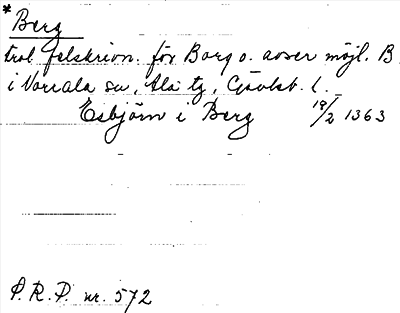 * Berg
trol. felskrivn. för Borg o. avser möjl. B.
i Norrala sn, Ala tg, Gävleb. l.
Esbjörn i Berg 19/2 1363
P.R.P. nr. 572